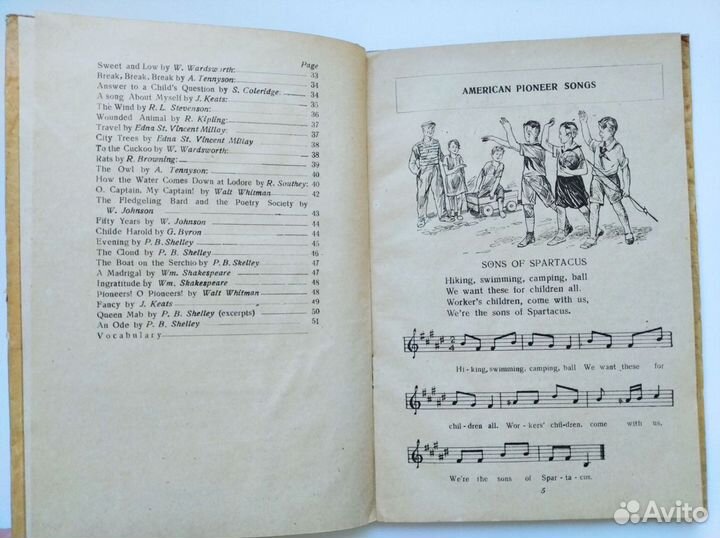 Page
Sweet and Low by W. Wardsworth: 33
Break, Break, Break by A. Tennyson: 34
Answer to a Child's Question by S. Coleridge: 34
A song About Myself by J. Keats: 35
The Wind by R. L. Stevenson: 36
Wounded Animal by R. Kipling: 36
Travel by Edna St. Vincent Millay 37
City Trees by Edna St. Vincent Millay 38
To the Cuckoo by W. Wardsworth: 38
Rats by R. Browning: 39
The Owl by A. Tennyson: 40
How the Water Comes Down at Lodore by R. Southey: 40
O. Captain, My Captain! by Walt Whitman: 42
The Fledgeling Bard and the Poetry Society by
W. Johnson 43
Fifty Years by W. Johnson 44
Childe Harold by G. Byron 44
Evening by P. B. Shelley 45
The Cloud by P. B. Shelley 46
The Boat on the Serchio by P. B. Skelley 47
A Madrigal by Wm. Shakespeare 47
Ingratitude by Wm. Shakespeare 48
Pioneers! O Pioneers! by Walt Whitman 48
Fancy by J. Keats 49
Queen Mab by P. B. Shelley (excerpts) 50
An Ode by P. B. Shelley 51
Vocabulary
AMERICAN PIONEER SONGS
SONS OF SPARTACUS
Hiking, swimming, camping, ball
We want these for children all.
Worker's children, come with us,
We're the sons of Spartacus.
2
4
Hi-king, swimming, camping, ball We want these for
chil-dren all. Wor-kers' chil-dren. come with us,
We're the sons of Spar-ta-cus.
5
Avito